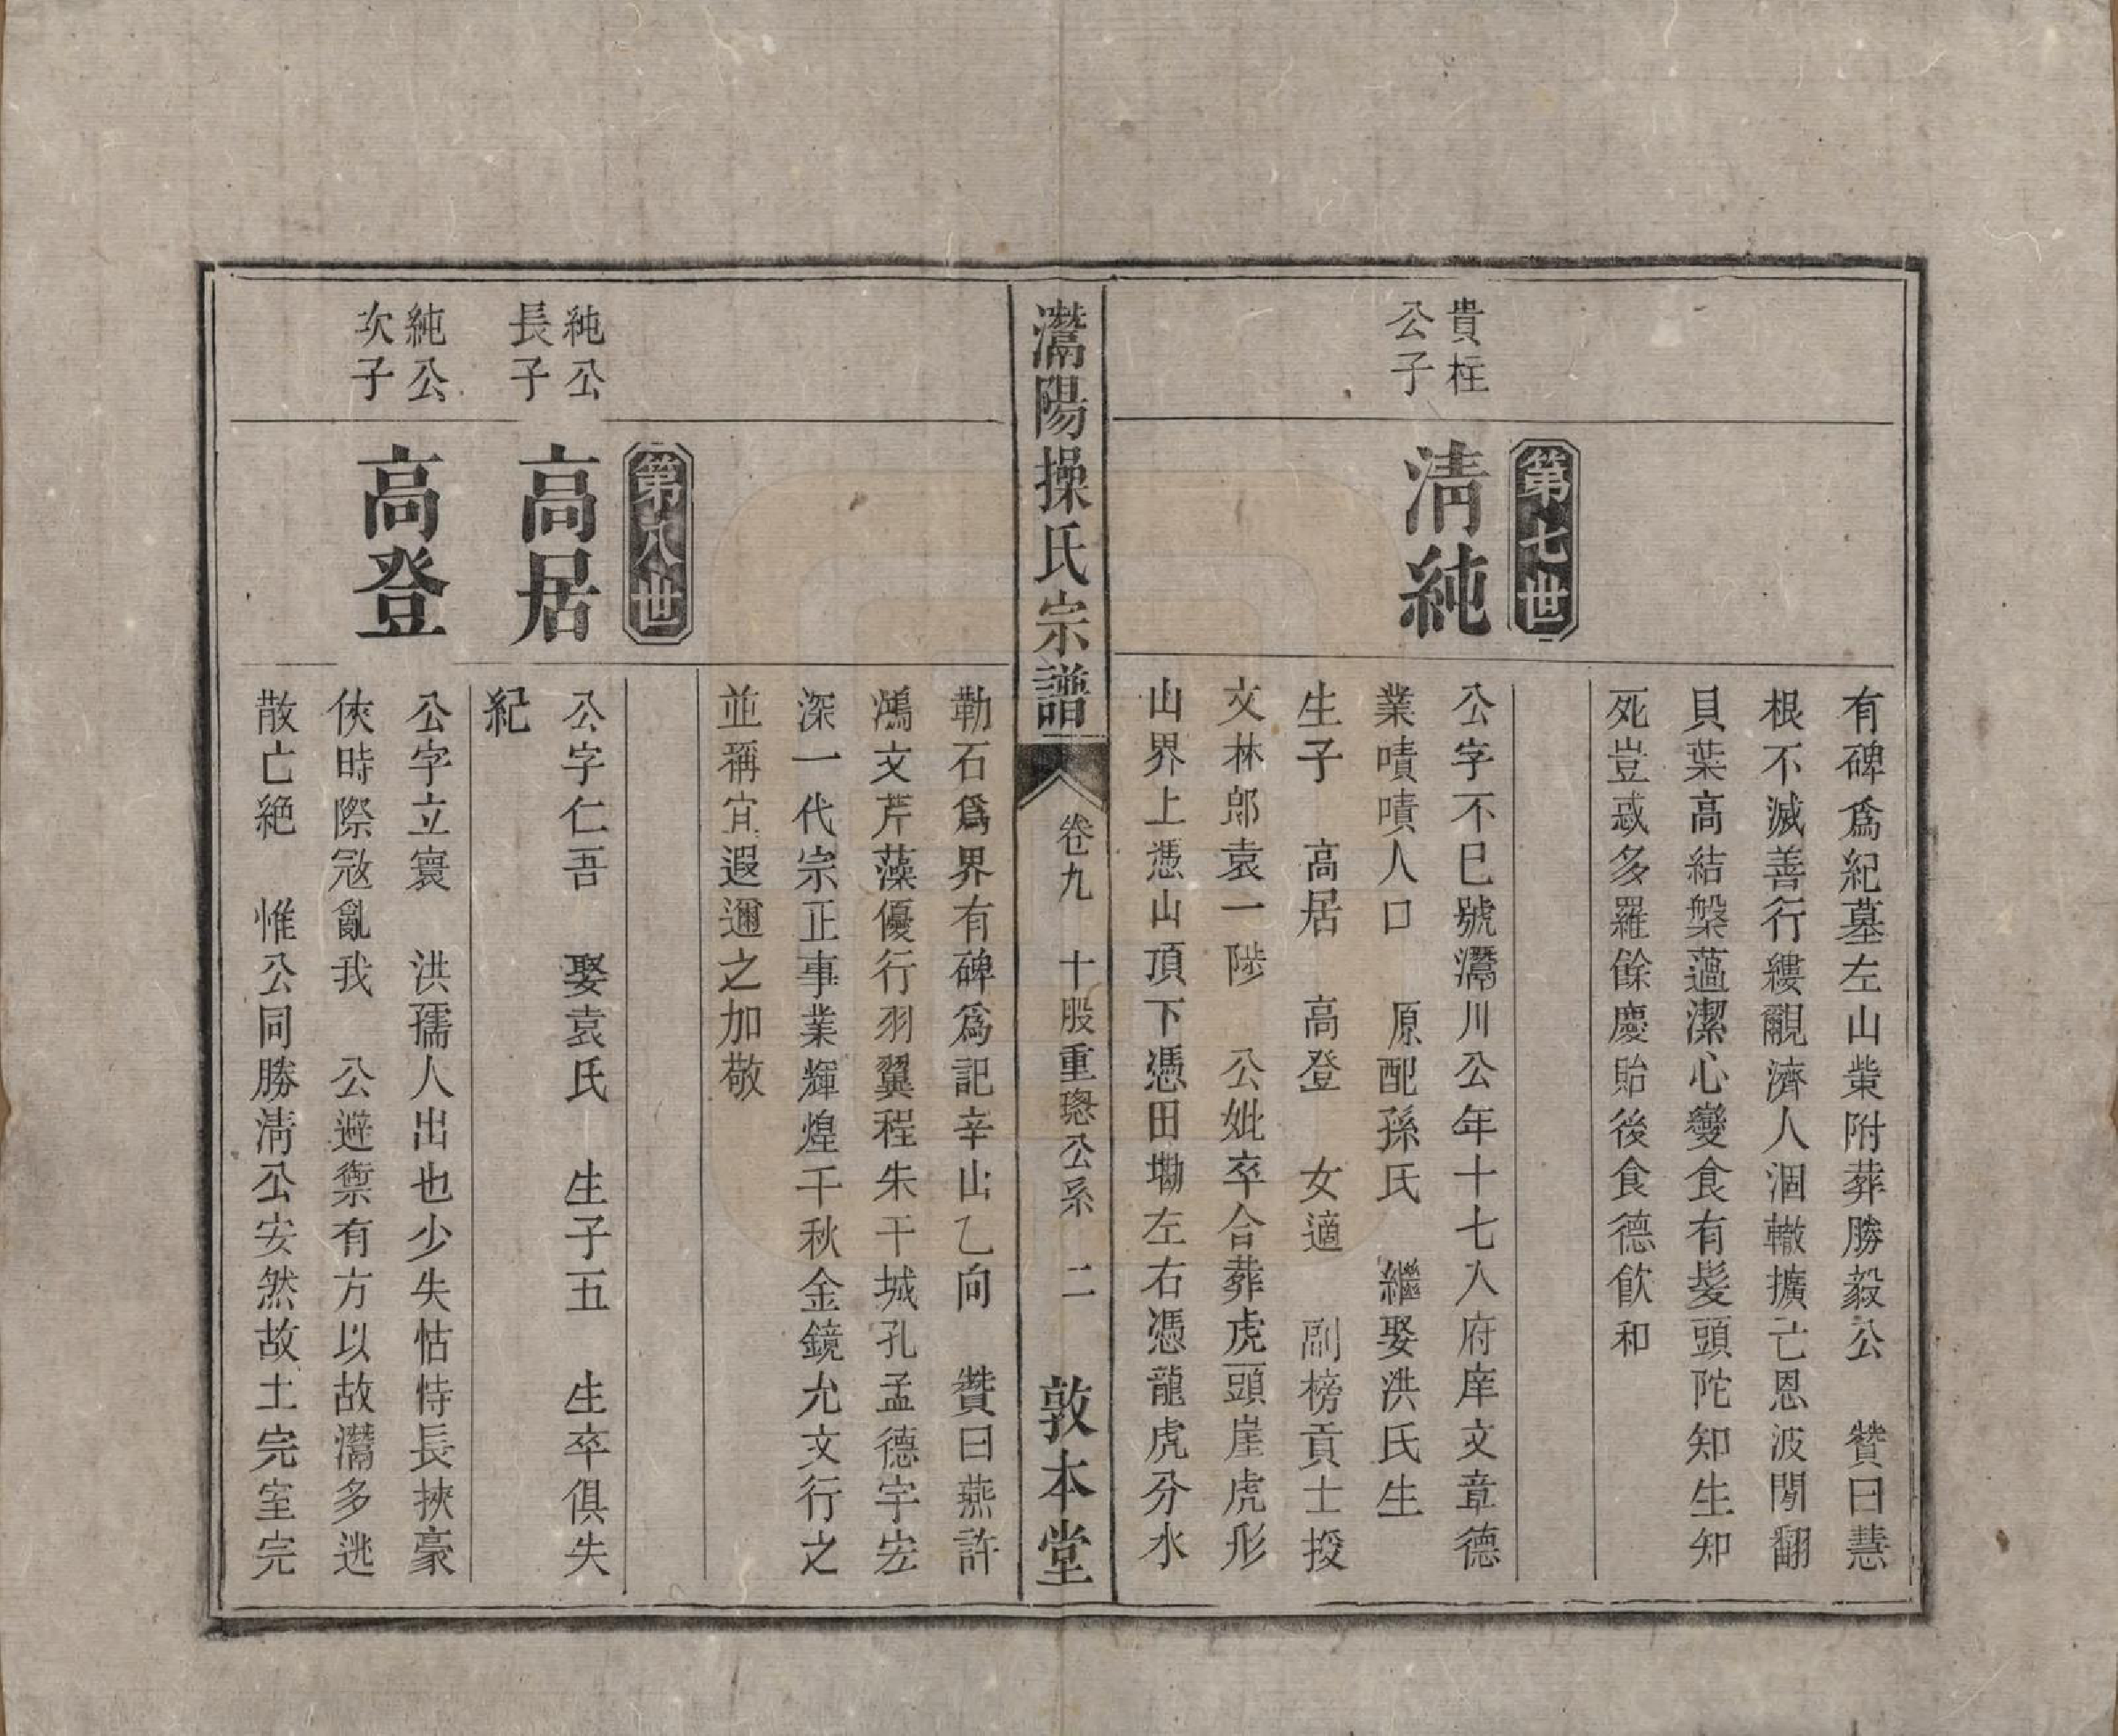 有碑爲紀墓左山業附葬勝毅公　贊曰慧
根不滅善行縷覼濟人涸轍擴亡恩波閒翻
貝葉高結槃薀潔心變食有髮頭陀知生知
死豈惑多羅餘慶貽後食德飲和
第七世
貴柱
公子
淸純
公字不已號灊川公年十七入府庠文章德
業嘖嘖人口　原配孫氏　繼娶洪氏生
生子　高居　高登　女適　副榜貢士授
文林郎袁一陟　公妣卒合葬虎頭崖虎形
山界上憑山頂下憑田墈左右憑龍虎分水
灊陽操氏宗譜
卷九　十股重璁公系　二
敦本堂
勒石爲界有碑爲記辛山乙向　贊曰燕許
鴻文芹藻優行羽翼程朱干城孔孟德宇宏
深一代宗正事業輝煌千秋金鏡允文行之
並稱宜遐邇之加敬
第八世
純公
長子
高居
公字仁吾　娶袁氏　生子五　生卒俱失
紀
純公
次子
高登
公字立寰　洪孺人出也少失怙恃長挾豪
俠時際寇亂我　公避禦有方以故灊多逃
散亡絶　惟公同勝淸公安然故土完室完